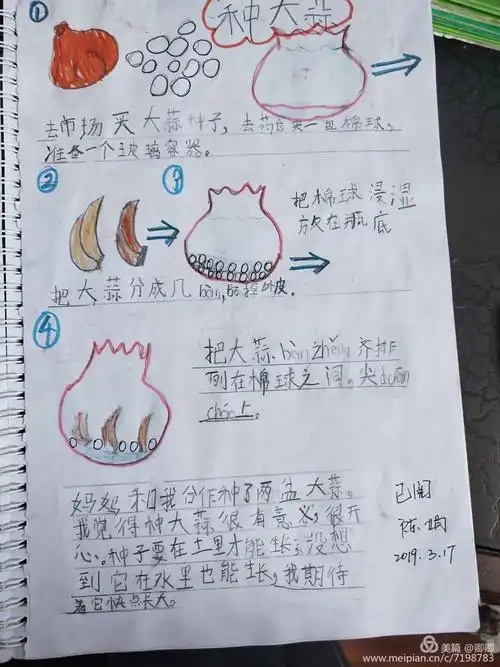 种大蒜
①
去市场买大蒜种子，去药店买一包棉球。
准备一个玻璃容器。
②
把大蒜分成几bàn，掉外皮。
③
把棉球浸湿
放在瓶底
④
把大蒜 zhěng齐排
列在棉球之间。尖duān
cháo上。
妈妈和我分作种了两盆大蒜。
我觉得种大蒜很有意义，很开
心。种子要在土里才能生长，没想
到它在水里也能生长，我期待
着它快点长大。
已阅
陈娟
2019.3.17
美篇 @卿卿
www.meipian.cn/c/7198783